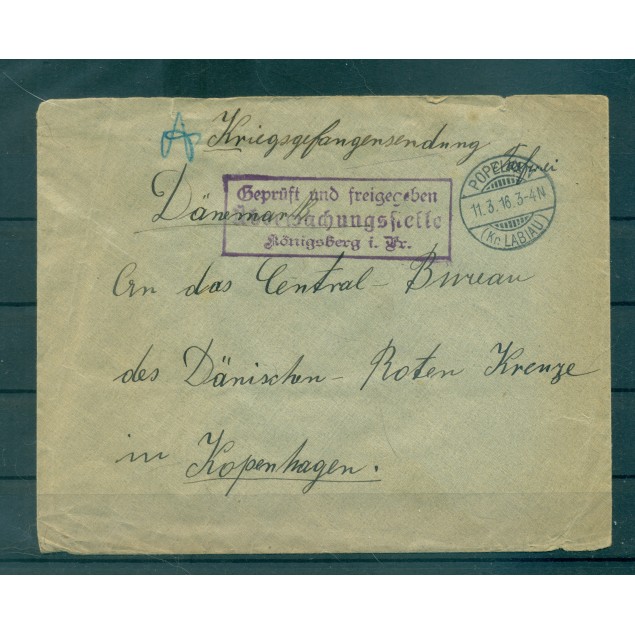 A Kriegsgefangensendung
POPELKEN
11.3.16.3-4N
(Kr. LABIAU)
Geprüft und freigegeben
Überwachungsstelle
Königsberg i. Pr.
Dänemark
An das Central-Bureau
des Dänischen-Roten Kreuze
in Kopenhagen.